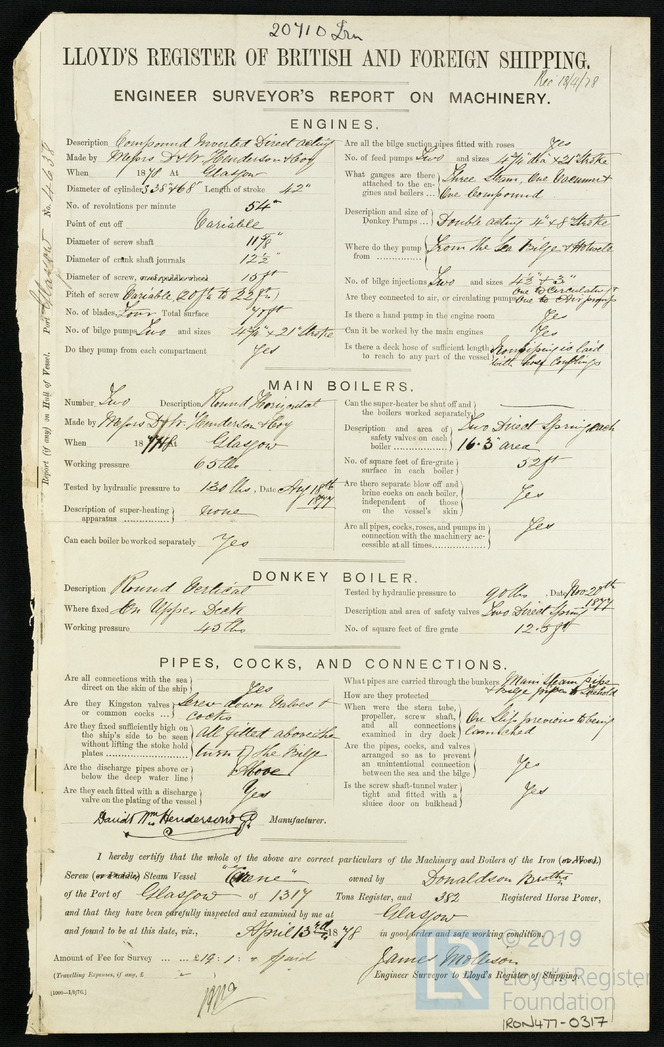 20710 Irn
LLOYD'S REGISTER OF BRITISH AND FOREIGN SHIPPING.
Rec 18/4/78
ENGINEER SURVEYOR'S REPORT ON MACHINERY.
Report (if any) on Hull of Vessel. Port Glasgow No. 4638
ENGINES.
Description Compound Inverted Direct acting
Made by Messrs D & W. Henderson & Coy
When 1878 At Glasgow
Diameter of cylinders 38" & 68" Length of stroke 42"
No. of revolutions per minute 54
Point of cut off Variable
Diameter of screw shaft 11 7/8"
Diameter of crank shaft journals 12 1/2"
Diameter of screw, or of paddle wheel 15 ft
Pitch of screw Variable (20 ft to 22 ft)
No. of blades Four Total surface
No. of bilge pumps Two and sizes 4 1/4" x 21" Stroke
Do they pump from each compartment Yes
Are all the bilge suction pipes fitted with roses Yes
No. of feed pumps Two and sizes 4 1/4" dia x 21" Stroke
What gauges are there attached to the engines and boilers ... Three Steam, One Vacuum & One Compound
Description and size of Donkey Pumps ... Double acting 4" x 8" Stroke
Where do they pump from From the Sea Bilge & Hotwell
No. of bilge injections Two and sizes 4 1/2" & 3"
Are they connected to air, or circulating pump One to Circulating & One to Air pumps
Is there a hand pump in the engine room Yes
Can it be worked by the main engines Yes
Is there a deck hose of sufficient length to reach to any part of the vessel Iron piping is laid with hose couplings
MAIN BOILERS.
Number Two Description Round Horizontal
Made by Messrs D & W. Henderson & Coy
When 1877 At Glasgow
Working pressure 65 lbs
Tested by hydraulic pressure to 130 lbs, Date Aug 18th 1877
Description of super-heating apparatus none
Can each boiler be worked separately Yes
Can the super-heater be shut off and the boilers worked separately
Description and area of safety valves on each boiler Two Direct Spring each 16.3" area
No. of square feet of fire-grate surface in each boiler 52 ft
Are there separate blow off and brine cocks on each boiler, independent of those on the vessel's skin Yes
Are all pipes, cocks, roses, and pumps in connection with the machinery accessible at all times Yes
DONKEY BOILER.
Description Round Vertical
Where fixed On Upper Deck
Working pressure 45 lbs
Tested by hydraulic pressure to 90 lbs, Date Nov 20th 1877
Description and area of safety valves Two Direct Spring
No. of square feet of fire grate 12.5 ft
PIPES, COCKS, AND CONNECTIONS.
Are all connections with the sea direct on the skin of the ship Yes
Are they Kingston valves or common cocks ... Screw down Valves & cocks
Are they fixed sufficiently high on the ship's side to be seen without lifting the stoke hold plates All fitted above the turn of the Bilge
Are the discharge pipes above or below the deep water line Above
Are they each fitted with a discharge valve on the plating of the vessel Yes
What pipes are carried through the bunkers Main Steam pipe & bilge pipes to Forehold
How are they protected
When were the stern tube, propeller, screw shaft, and all connections examined in dry dock On Slip previous to being launched
Are the pipes, cocks, and valves arranged so as to prevent an unintentional connection between the sea and the bilge Yes
Is the screw shaft-tunnel water tight and fitted with a sluice door on bulkhead Yes
David & Wm Henderson & Co Manufacturer.
I hereby certify that the whole of the above are correct particulars of the Machinery and Boilers of the Iron (or Wood)
Screw (or Paddle) Steam Vessel "Cyrene" owned by Donaldson Brothers
of the Port of Glasgow of 1317 Tons Register, and 382 Registered Horse Power,
and that they have been carefully inspected and examined by me at Glasgow
and found to be at this date, viz., April 13th 1878 in good order and safe working condition.
Amount of Fee for Survey ... ... £19 : 1 : " paid James Mollison
(Travelling Expenses, if any, £ " ) Engineer Surveyor to Lloyd's Register of Shipping.
[1000—1/9/76.]
LR © 2019
Lloyd's Register
Foundation
IRON477-0317